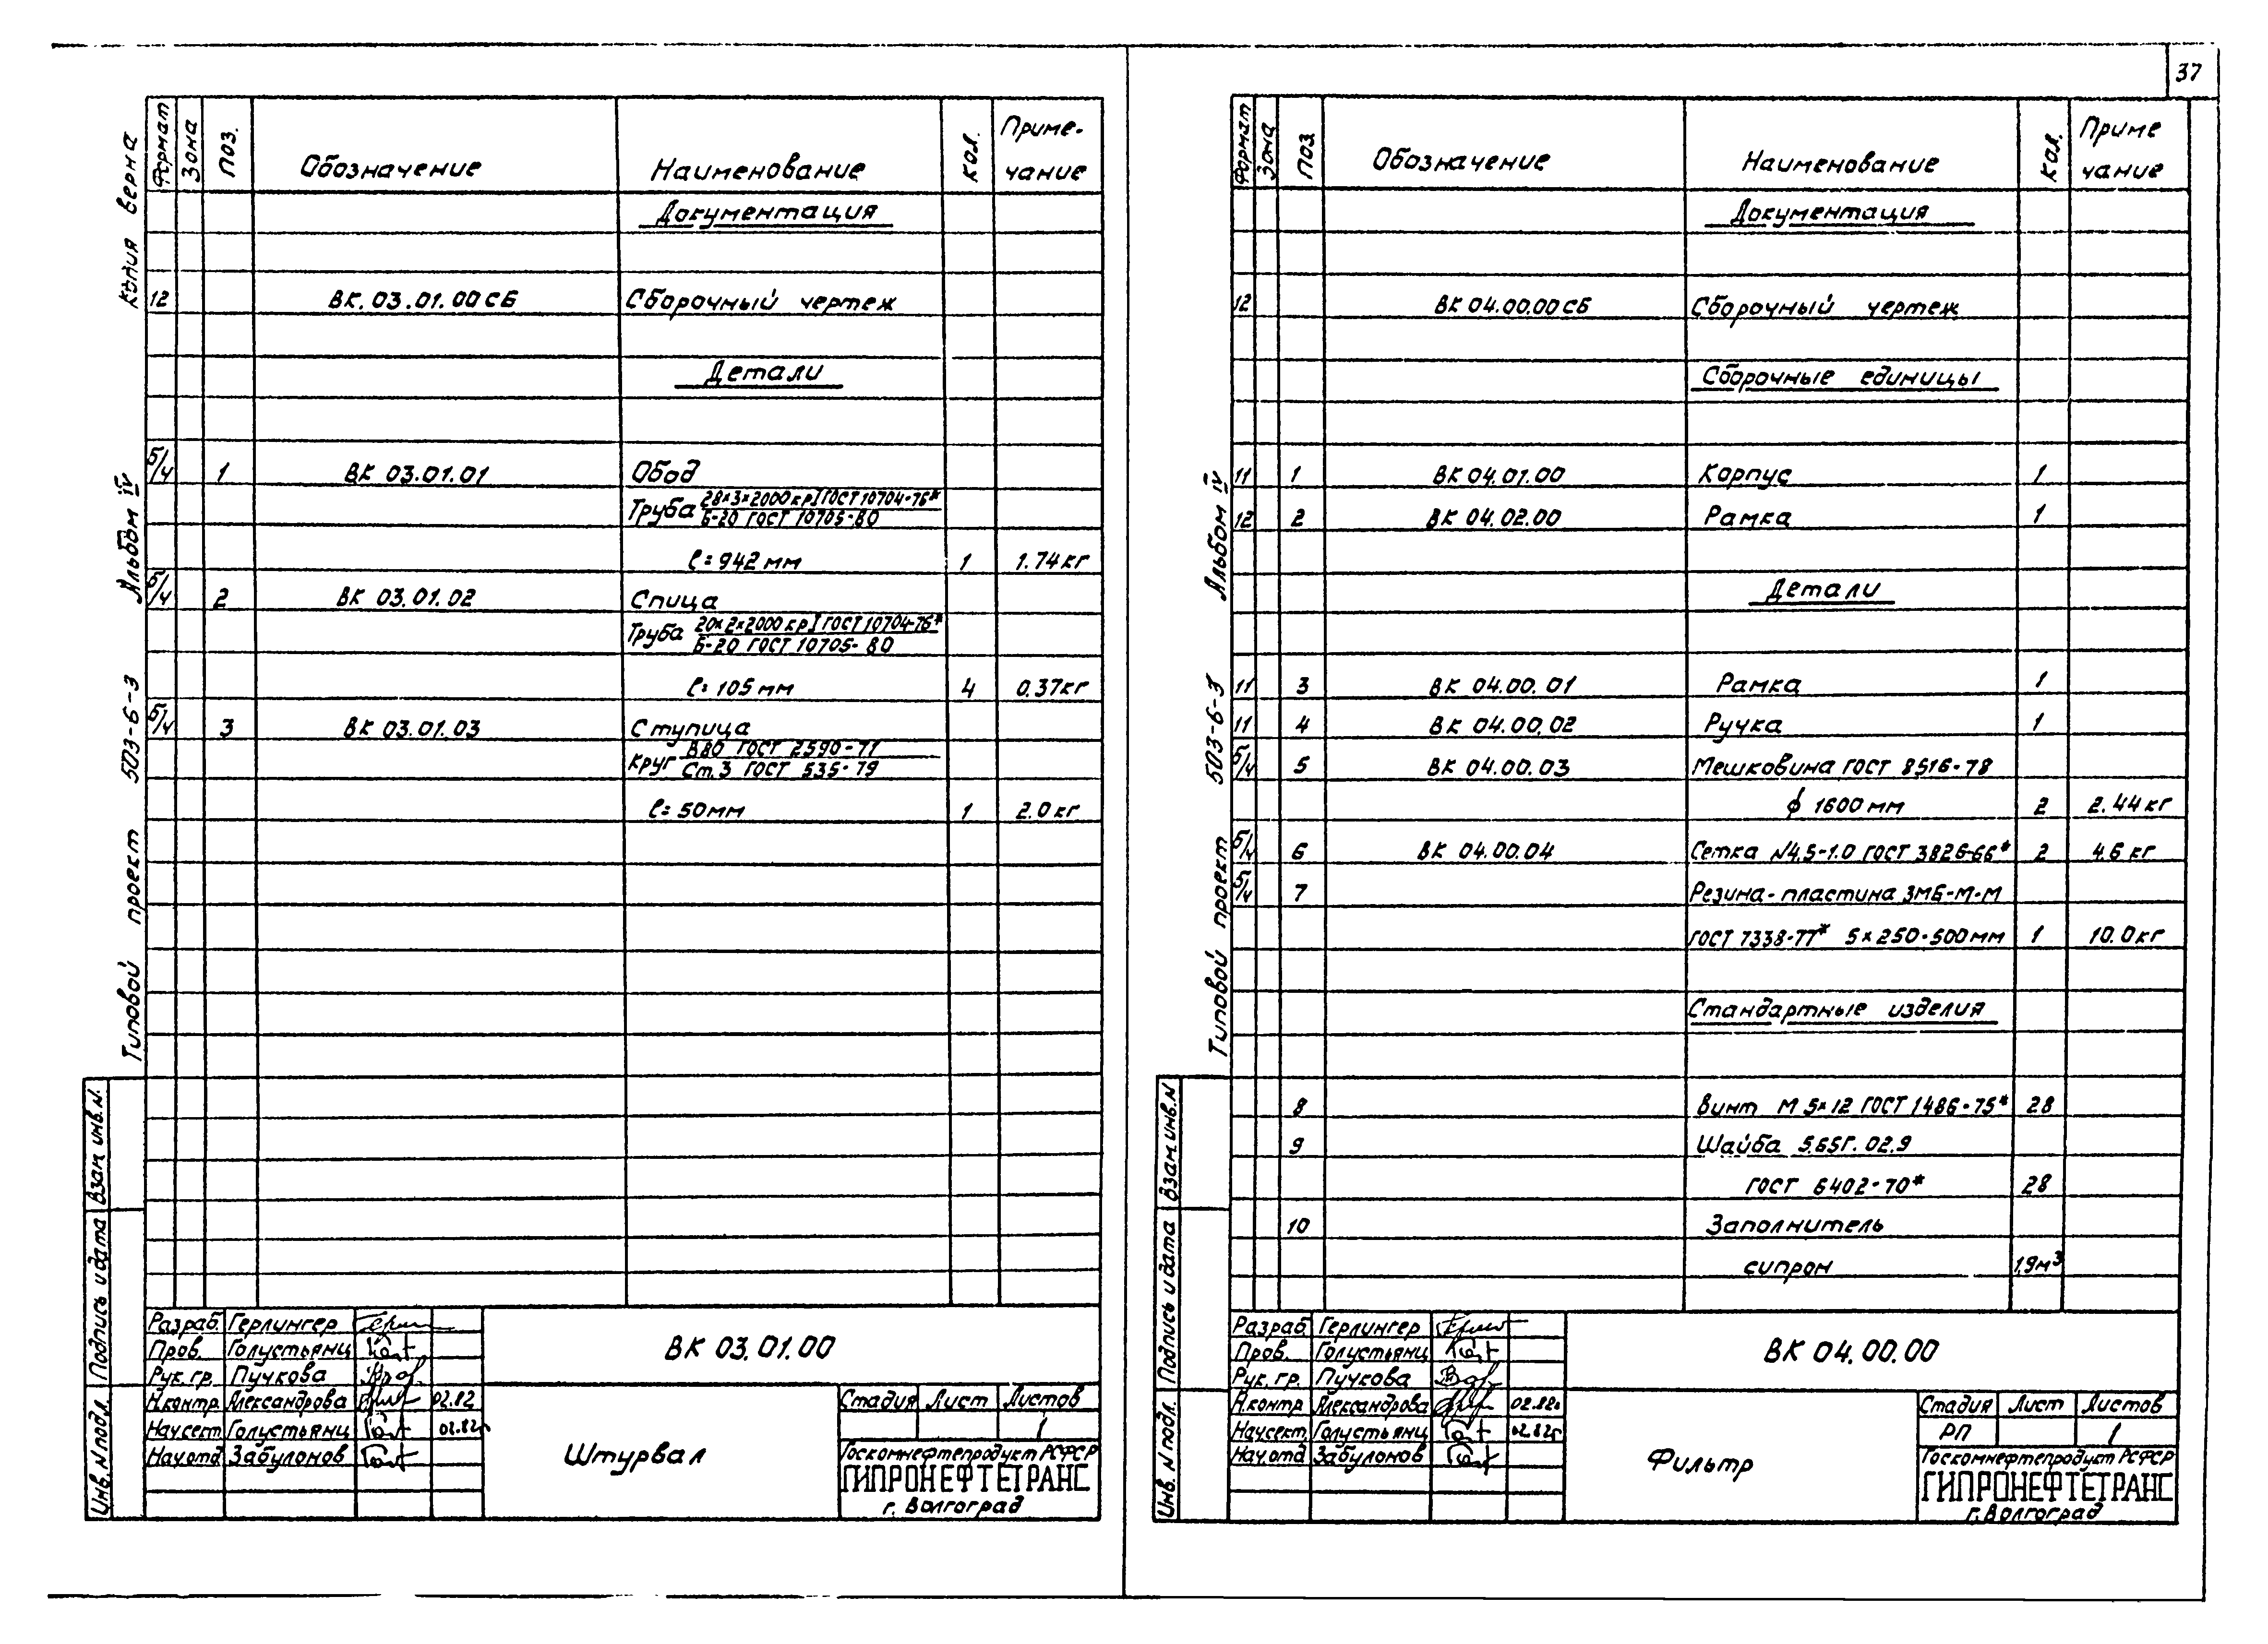 37
Копия верна
Альбом IV
Типовой проект 503-6-3
Формат Зона Поз. Обозначение Наименование Кол. Приме-
чание
Документация
12 ВК.03.01.00СБ Сборочный чертеж
Детали
б/ч 1 ВК 03.01.01 Обод
Труба 28×3×2000 кр I ГОСТ 10704-76*
Б-20 ГОСТ 10705-80
ℓ=942мм 1 1.74кг
б/ч 2 ВК 03.01.02 Спица
Труба 20×2×2000 кр I ГОСТ 10704-76*
Б-20 ГОСТ 10705-80
ℓ=105мм 4 0.37кг
б/ч 3 ВК 03.01.03 Ступица
Круг В80 ГОСТ 2590-71
Ст.3 ГОСТ 535-79
ℓ=50мм 1 2.0кг
Взам. инв. N.
Подпись и дата
Инв. N подл.
Разраб. Герлингер
Пров. Голустьянц
Рук. гр. Пучкова
Н.контр. Александрова 02.82
Нач.сект. Голустьянц 02.82г
Нач.отд Забулонов
ВК 03.01.00
Штурвал
Стадия Лист Листов
1
Госкомнефтепродукт РСФСР
ГИПРОНЕФТЕТРАНС
г. Волгоград
Альбом IV
Типовой проект 503-6-3
Формат Зона Поз. Обозначение Наименование Кол. Приме
чание
Документация
12 ВК 04.00.00СБ Сборочный чертеж
Сборочные единицы
11 1 ВК 04.01.00 Корпус 1
12 2 ВК 04.02.00 Рамка 1
Детали
11 3 ВК 04.00.01 Рамка 1
11 4 ВК 04.00.02 Ручка 1
б/ч 5 ВК 04.00.03 Мешковина ГОСТ 8516-78
ϕ 1600мм 2 2.44кг
б/ч 6 ВК 04.00.04 Сетка N4,5-1.0 ГОСТ 3826-66* 2 4.6кг
б/ч 7 Резина-пластина 3МБ-М-М
ГОСТ 7338-77* 5×250×500мм 1 10.0кг
Стандартные изделия
8 Винт М5×12 ГОСТ 1486-75* 28
9 Шайба 5.65Г.02.9
ГОСТ 6402-70* 28
10 Заполнитель
сипрон 1.9м³
Взам. инв. N
Подпись и дата
Инв. N подл.
Разраб Герлингер
Пров. Голустьянц
Рук. гр. Пучкова
Н.контр Александрова 02.82г
Нач.сект. Голустьянц 02.82г
Нач.отд Забулонов
ВК 04.00.00
Фильтр
Стадия Лист Листов
РП 1
Госкомнефтепродукт РСФСР
ГИПРОНЕФТЕТРАНС
г. Волгоград